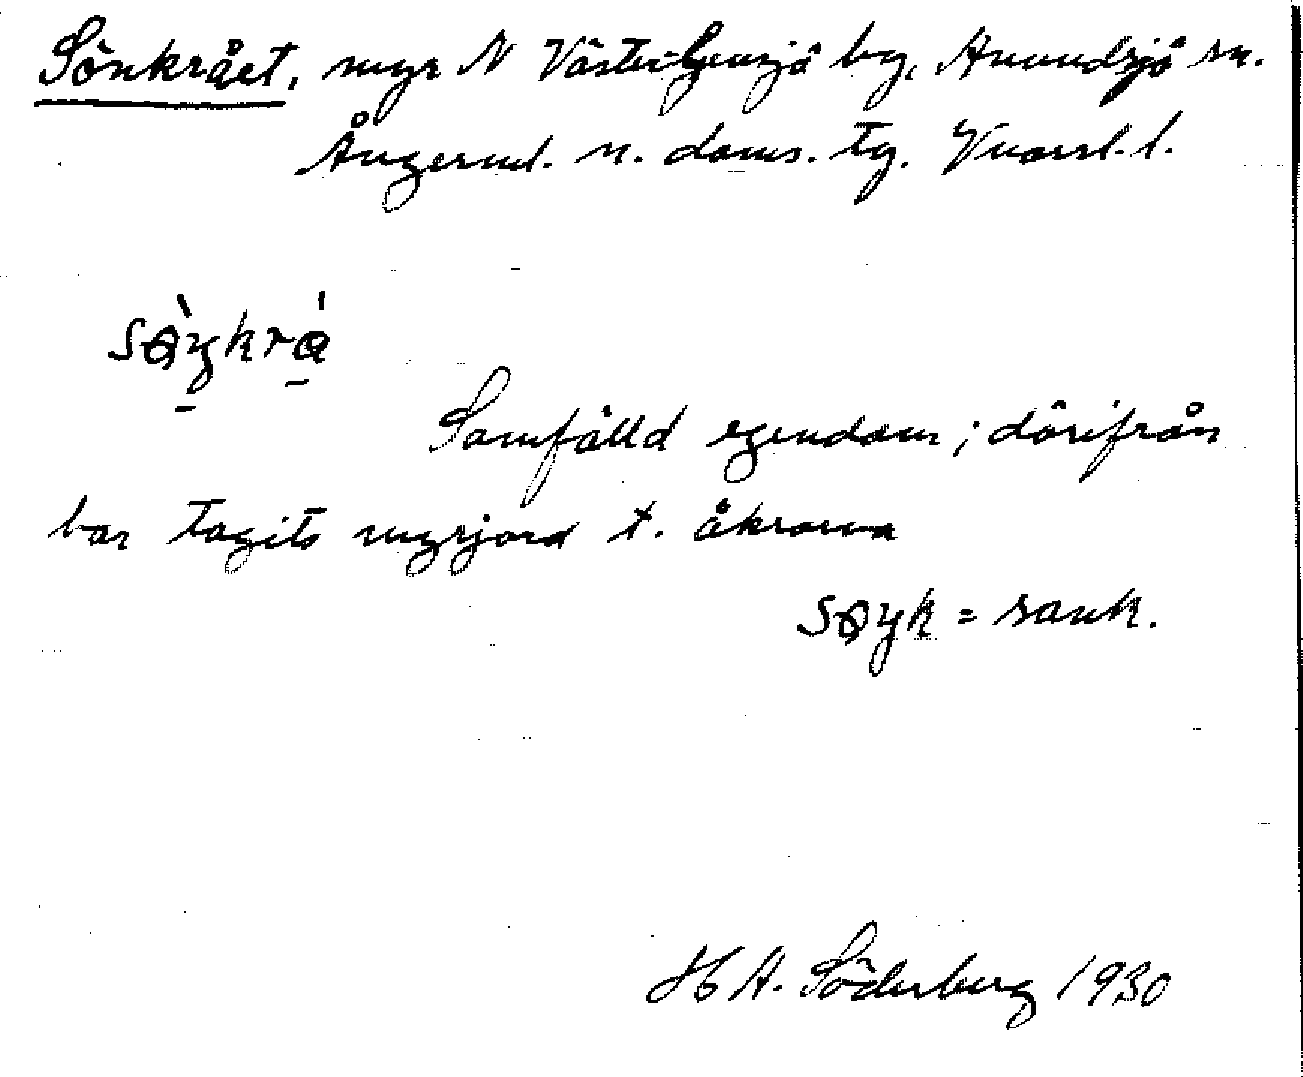 Sönkrået, myr N Väster-Gensjö by, Anundsjö sn.
Ångerml. n. doms. tg. Vnorrl. l.
Samfälld egendom; därifrån
har tagits myrjord t. åkrarna
= sank.
H A. Söderberg 1930